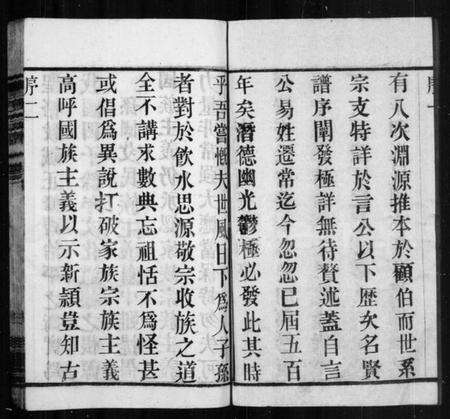 序一
有八次淵源推本於顧伯而世系
宗支特詳於言公以下歷久名賢
譜序闡發極詳無待贅述蓋自言
公易姓遷常迄今忽忽已屆五百
年矣潛德幽光鬱極必發此其時
乎吾嘗慨夫世風日下為人子孫
者對於飲水思源敬宗收族之道
全不講求數典忘祖恬不為怪甚
或倡為異說打破家族宗族主義
高呼國族主義以示新頴豈知古
序二